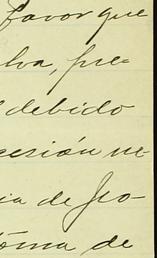 favor que
lva, pre-
debido
cesión ne-
ia de Jo-
oma de